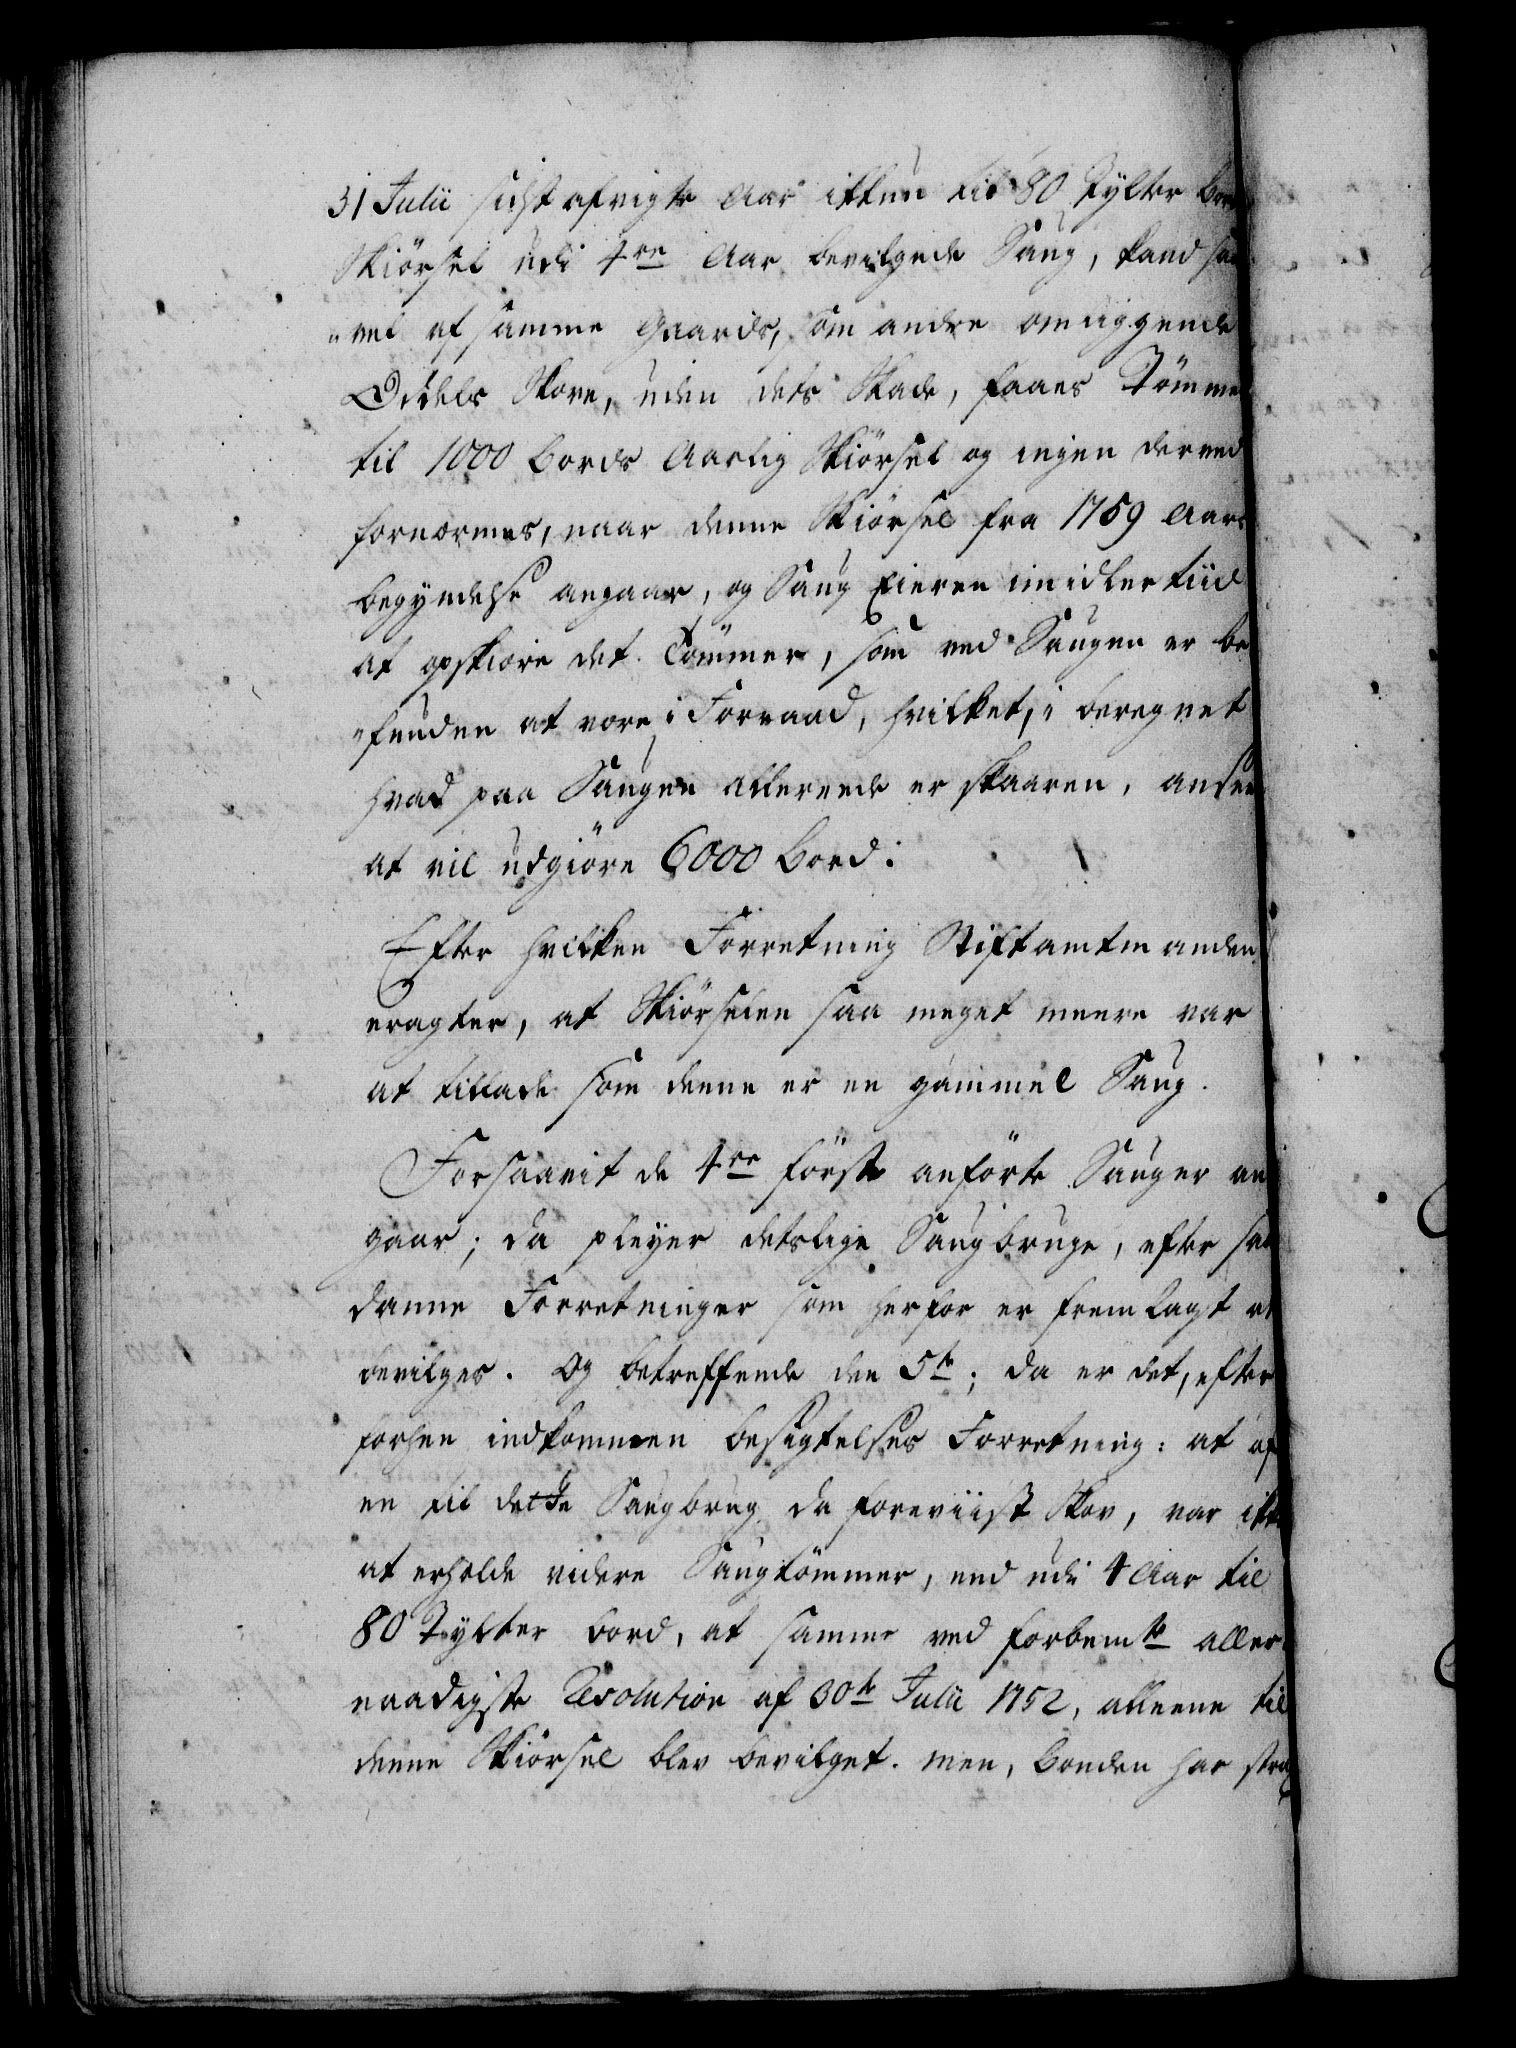 31 Julii sidst afvigte Aar ikkun til 80 Tylter Bord
Skiørsel udi 4re Aar bevilgede Saug, kand saa
"vel af samme Gaards, som andre omliggende
Oddels Skove, uden dets Skade, faaes Tømmer
til 1000 bords Aarlig Skiørsel og ingen derved
fornærmes, naar denne Skiørsel fra 1759 Aars
begyndelse angaar, og Saug Eieren imidlertiid
at opskiøre det Tømmer, som ved Saugen er be
"funden at være i Forraad, hvilket, i beregnet
hvad paa Saugen allereede er skaaren, ansees
at vil udgiøre 6000 bord.
Efter hvilken Forretning Stiftamtmanden
eragter, at Skiørselen saa meget meere var
at tillade som denne er en gammel Saug.
Forsaavit de 4re første anførte Sauger an
gaar; da pleyer deslige Saugbruge, efter saa
danne Forretninger som herfor er fremlagt at
bevilges. Og betreffende den 5te; da er det, efter
forhen indkommen besigtelses Forretning: at af
en til dette Saugbrug da foreviist Skov, var ikke
at erholde videre Saugtømmer, end udi 4 Aar til
80 Tylter bord, at samme ved forbemte aller
naadigste Resolution af 30te Julii 1752, alleene til
denne Skiørsel blev bevilget. men, Bonden har strax